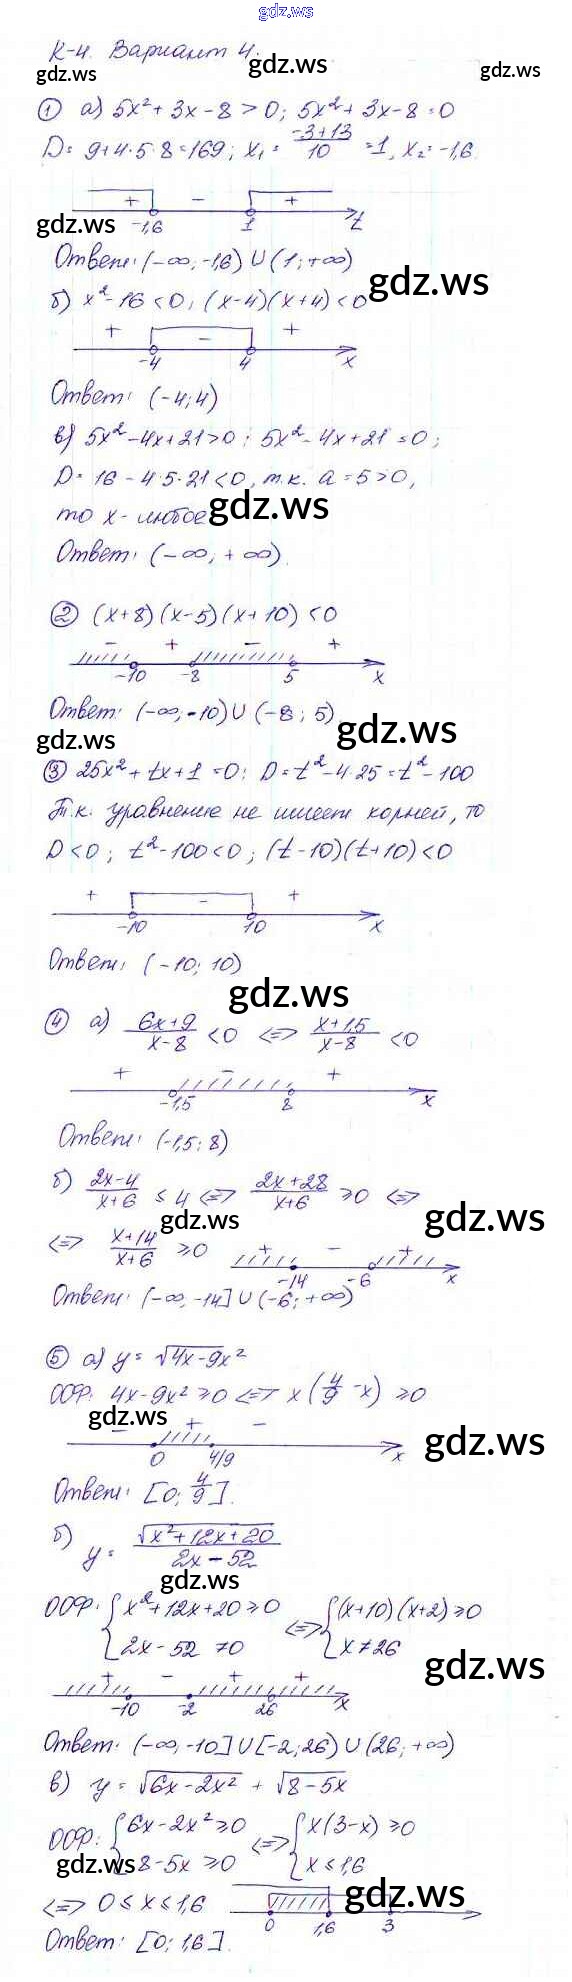 gdz.ws
К-4. Вариант 4.
gdz.ws gdz.ws
① а) 5x² + 3x - 8 > 0; 5x² + 3x - 8 = 0
D = 9+4·5·8 = 169; x₁ = (-3+13)/10 = 1, x₂ = -1,6.
+ - +
-1,6 1 t
gdz.ws
Ответ: (-∞; -1,6) ∪ (1; +∞)
gdz.ws
б) x² - 16 < 0; (x-4)(x+4) < 0
+ - +
-4 4 x
Ответ: (-4; 4)
в) 5x² - 4x + 21 > 0; 5x² - 4x + 21 = 0;
D = 16 - 4·5·21 < 0, т.к. a = 5 > 0,
то x - любое
gdz.ws
Ответ: (-∞; +∞).
② (x+8)(x-5)(x+10) < 0
- + - +
-10 -8 5 x
Ответ: (-∞; -10) ∪ (-8; 5).
gdz.ws
③ 25x² + tx + 1 = 0; D = t² - 4·25 = t² - 100
Т.к. уравнение не имеет корней, то
D < 0; t² - 100 < 0; (t-10)(t+10) < 0
+ - +
-10 10 x
Ответ: (-10; 10)
gdz.ws
④ а) (6x+9)/(x-8) < 0 <=> (x+1,5)/(x-8) < 0
+ - +
-1,5 8 x
Ответ: (-1,5; 8)
б) (2x-4)/(x+6) ≤ 4 <=> (2x+28)/(x+6) ≥ 0 <=>
gdz.ws gdz.ws
<=> (x+14)/(x+6) ≥ 0
+ - +
-14 -6 x
Ответ: (-∞; -14] ∪ (-6; +∞)
⑤ а) y = √(4x-9x²)
ООФ: 4x - 9x² ≥ 0 <=> x(4/9 - x) ≥ 0
gdz.ws gdz.ws
- + -
0 4/9 x
Ответ: [0; 4/9].
б) y = √(x²+12x+20)/(2x-52)
gdz.ws
ООФ: { x²+12x+20 ≥ 0 <=> { (x+10)(x+2) ≥ 0
2x - 52 ≠ 0 x ≠ 26
gdz.ws
+ - + +
-10 -2 26 x
Ответ: (-∞; -10] ∪ [-2; 26) ∪ (26; +∞)
в) y = √(6x-2x²) + √(8-5x)
ООФ: { 6x - 2x² ≥ 0 <=> { x(3-x) ≥ 0
8-5x ≥ 0 x ≤ 1,6
gdz.ws gdz.ws
<=> 0 ≤ x ≤ 1,6
0 1,6 3
Ответ: [0; 1,6].